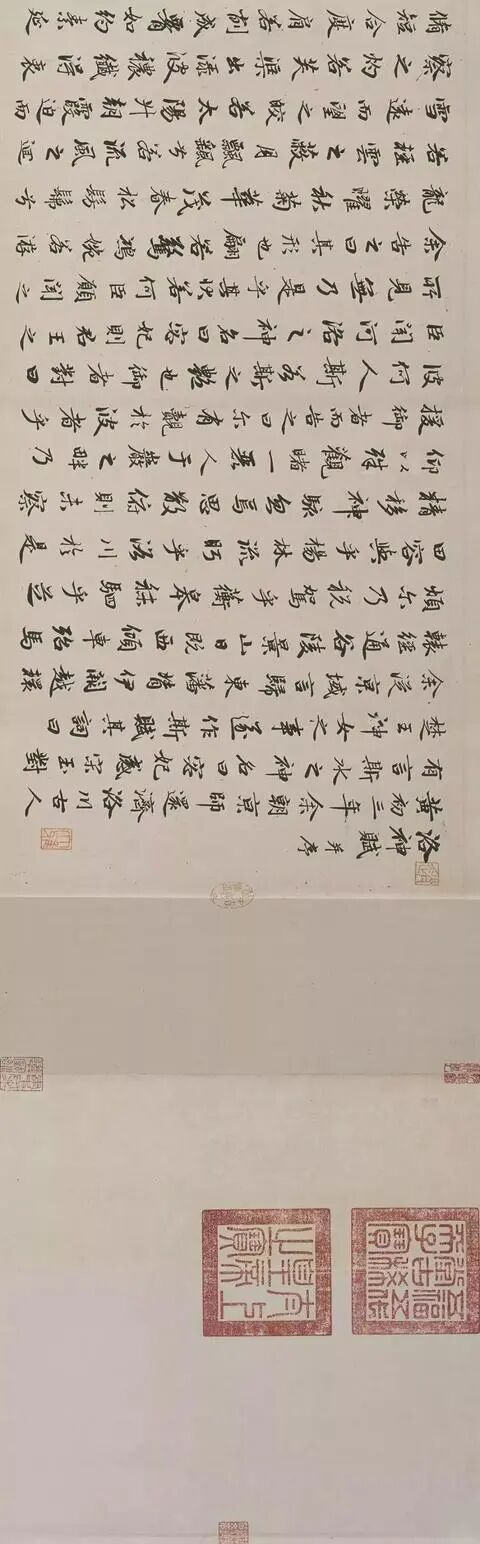 洛神賦 并序
黃初三年余朝京師還濟洛川古人
有言斯水之神名曰宓妃感宋玉對
楚王神女之事遂作斯賦其詞曰
余從京域言歸東藩背伊闕越轘
轅經通谷陵景山日既西傾車殆馬
煩尔乃稅駕乎蘅皋秣駟乎芝
田容與乎楊林流眄乎洛川於是
精移神駭忽焉思散俯則未察
仰以殊觀睹一麗人于巖之畔乃
援御者而告之曰尔有覿於彼者乎
彼何人斯若斯之艷也御者對曰
臣聞河洛之神名曰宓妃則君王之
所見無乃是乎其狀若何臣願聞之
余告之曰其形也翩若驚鴻婉若游
龍榮曜秋菊華茂春松髣髴兮
若輕雲之蔽月飄飄兮若流風之迴
雪遠而望之皎若太陽升朝霞迫而
察之灼若芙蕖出淥波穠纖得衷
脩短合度肩若削成腰如約素延
五福五代堂古稀天子寶
太上皇帝之寶